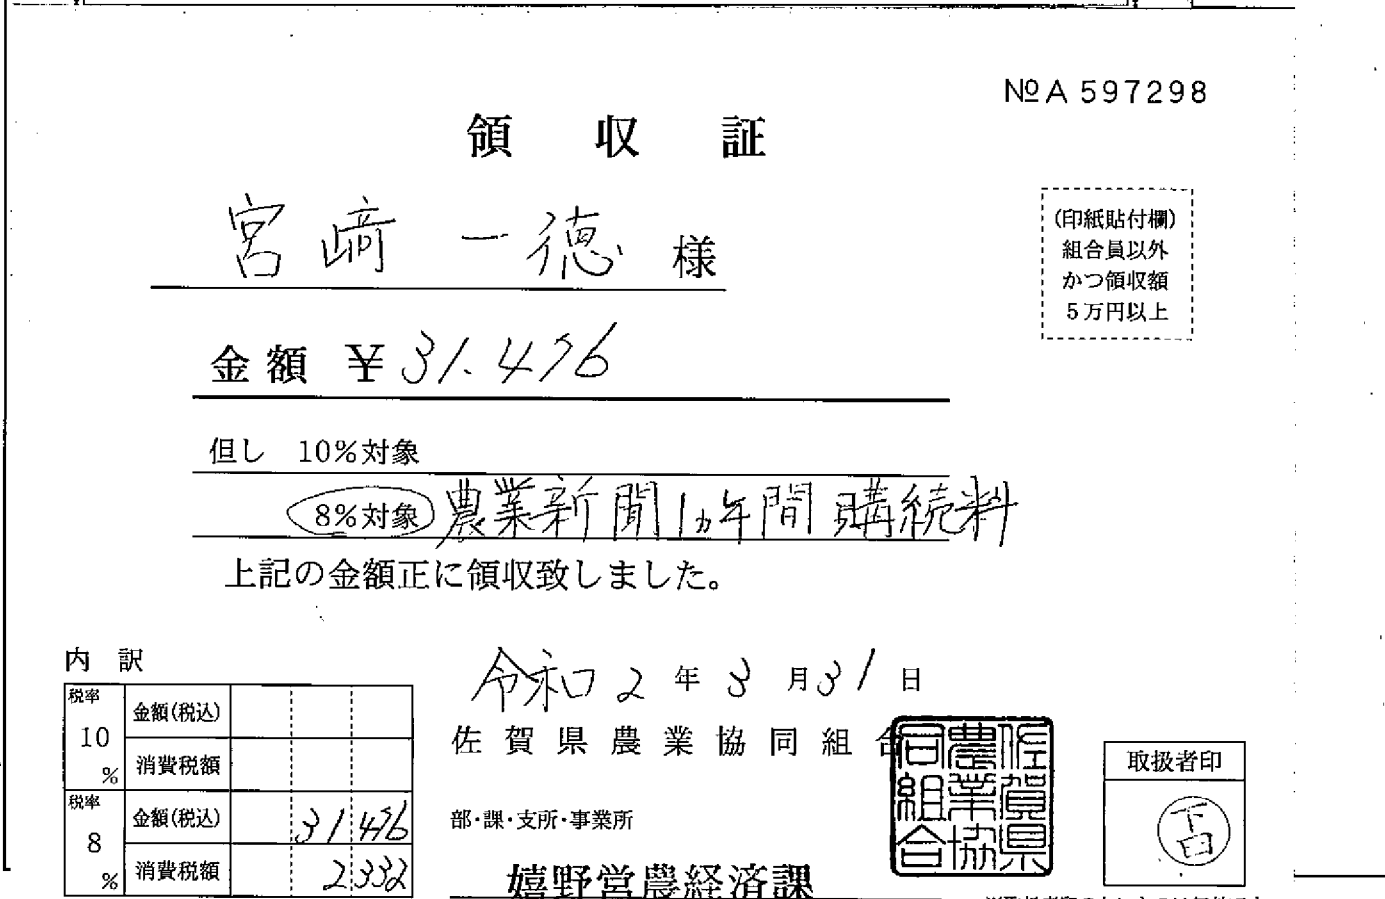 №A 597298
領収証
宮﨑 一徳 様
(印紙貼付欄)
組合員以外
かつ領収額
5万円以上
金額 ¥31.476
但し 10%対象
8%対象 農業新聞1ヵ年間購続料
上記の金額正に領収致しました。
内訳
税率 10 % 金額(税込)
消費税額
税率 8 % 金額(税込) 31476
消費税額 2332
令和2年3月31日
佐賀県農業協同組合
佐賀県農業協同組合
部・課・支所・事業所
嬉野営農経済課
取扱者印
下田